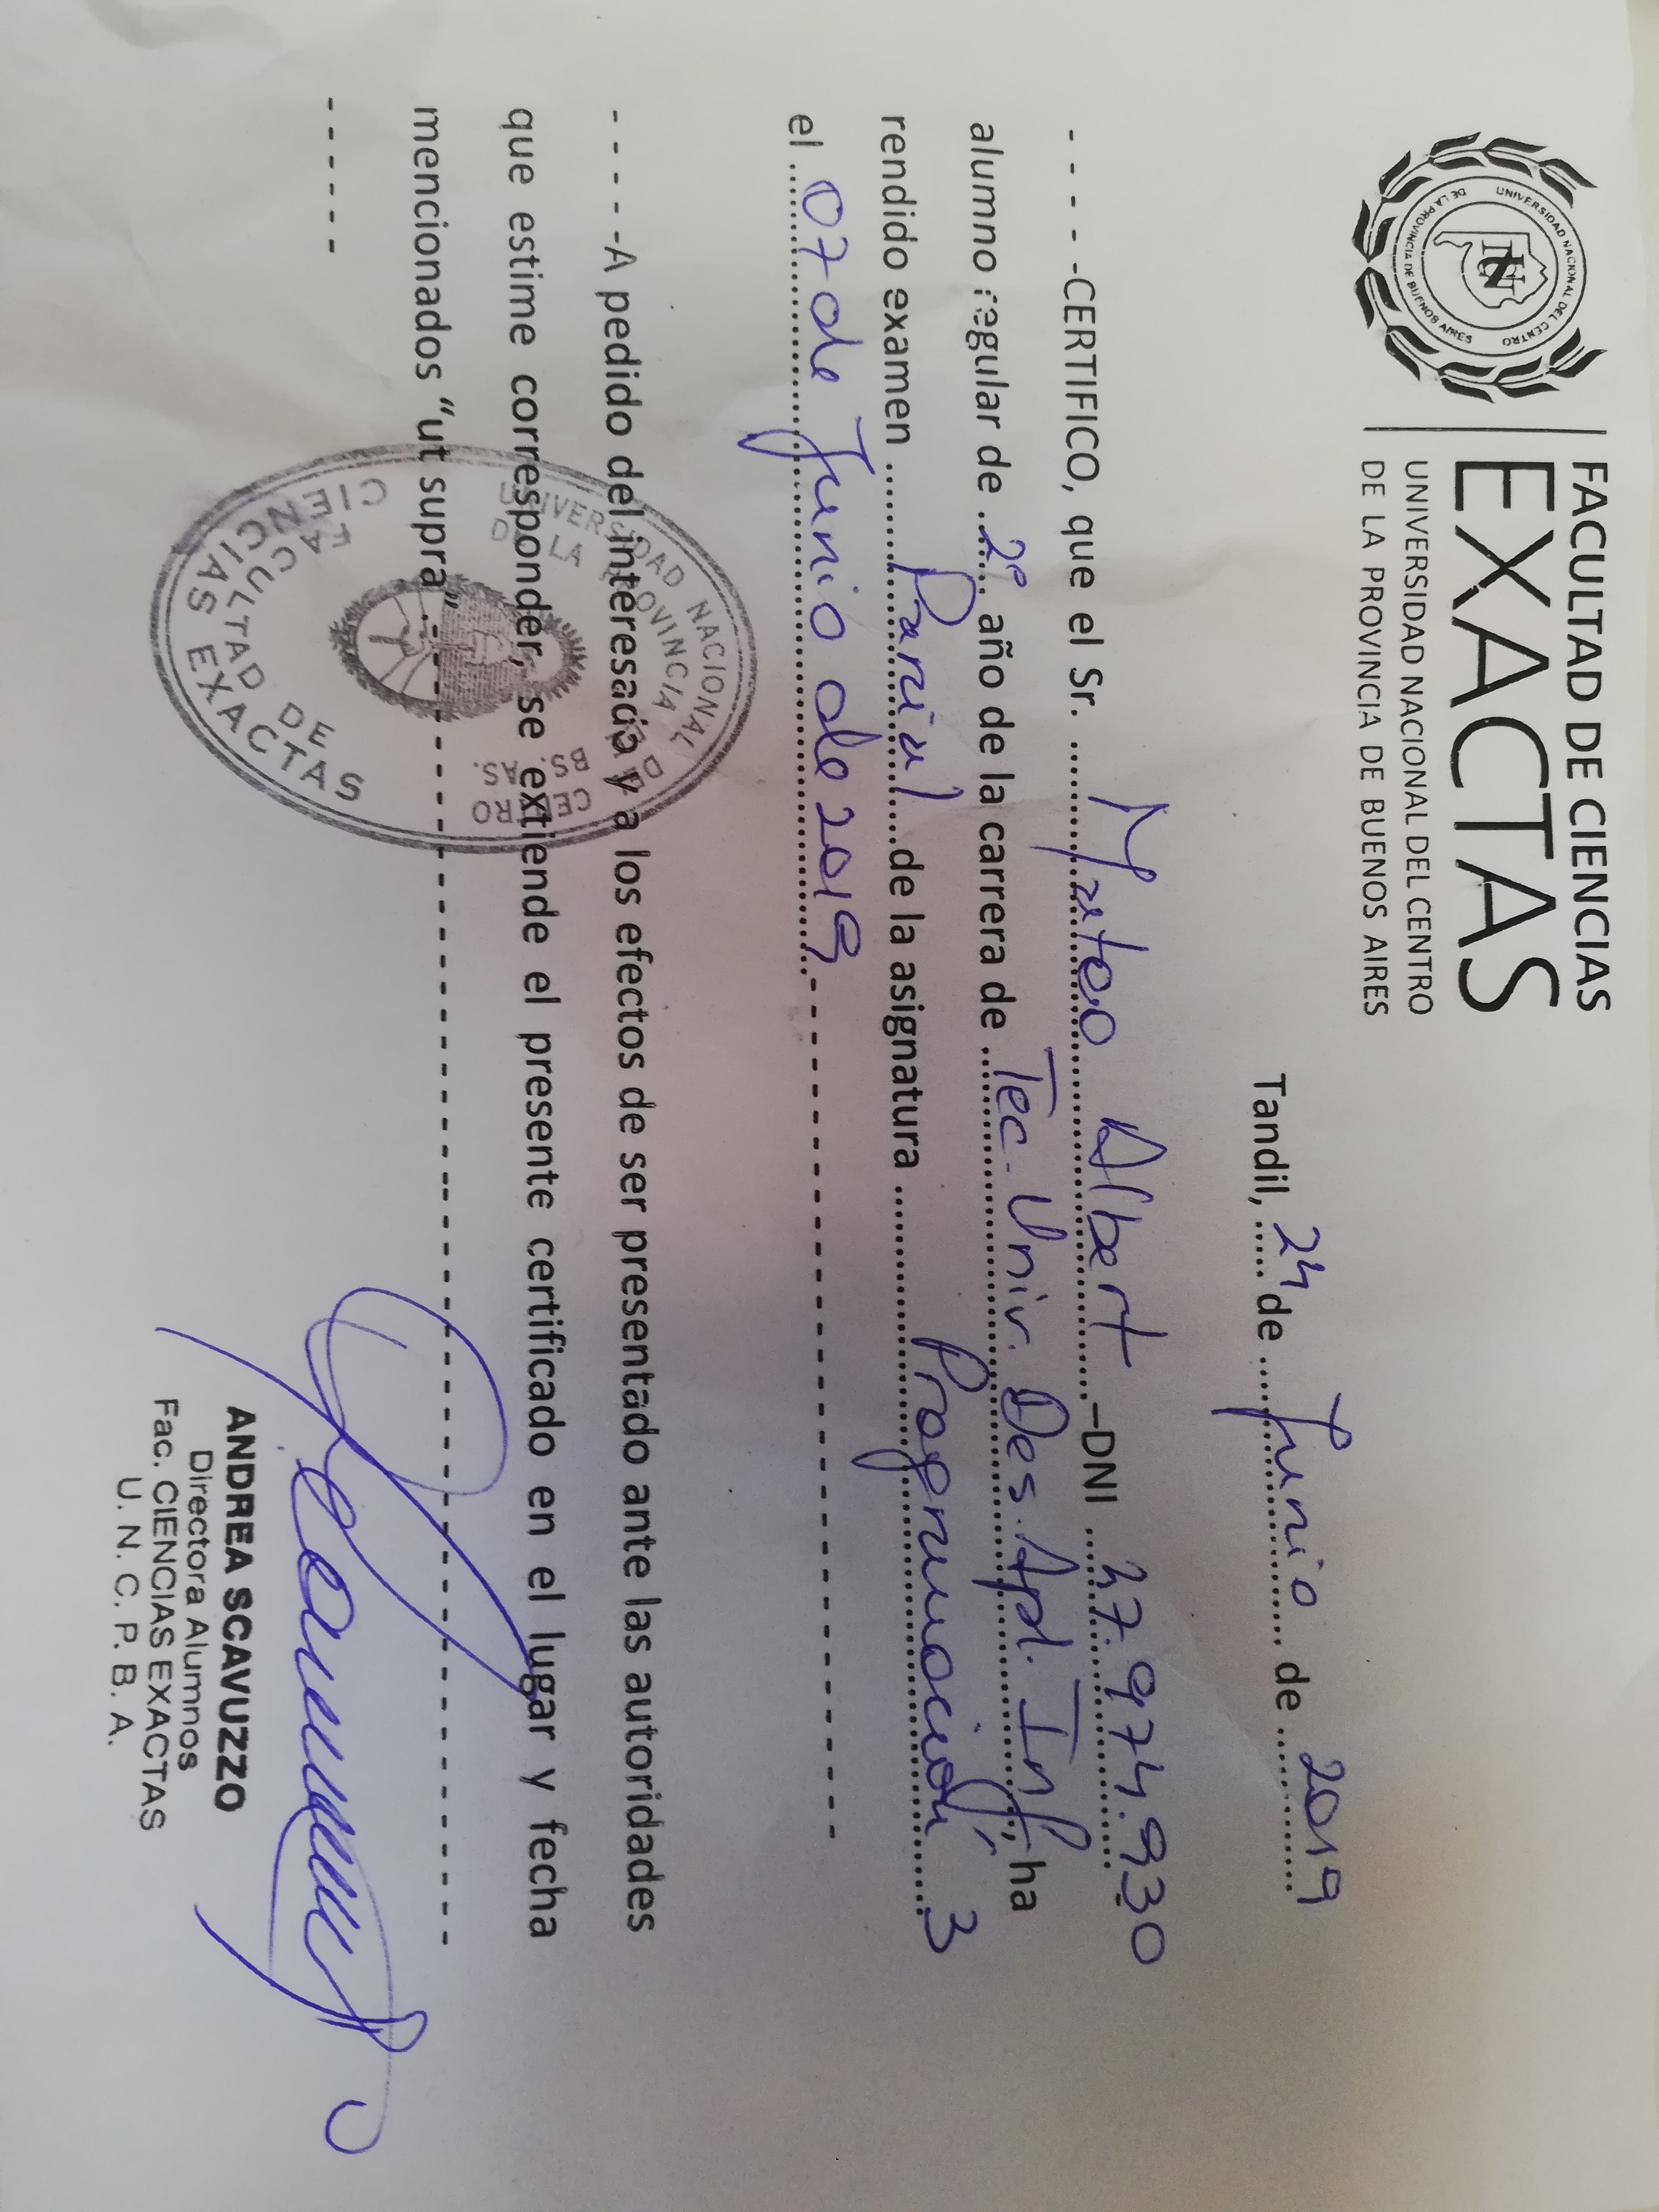 FACULTAD DE CIENCIAS
EXACTAS
UNIVERSIDAD NACIONAL DEL CENTRO
DE LA PROVINCIA DE BUENOS AIRES
UNIVERSIDAD NACIONAL DEL CENTRO
DE LA PROVINCIA DE BUENOS AIRES
Tandil, ..24.. de ....Junio.... de ....2019....
- - - - -CERTIFICO, que el Sr. ....Mateo Albert....–DNI ....47.974.930....
alumno regular de ..2º.. año de la carrera de ....Tec. Univ. Des. Apl. Inf...., ha
rendido examen ....Parcial....de la asignatura ....Programación 3....
el ....07 de Junio de 2019....- - - - - - - - - - - - - - - - - - - - - - - - - - - -
- - - - -A pedido del interesado y a los efectos de ser presentado ante las autoridades
que estime corresponder, se extiende el presente certificado en el lugar y fecha
mencionados “ut supra”.- - - - - - - - - - - - - - - - - - - - - - - - - - - - - - - - - - - -
- - - - -
UNIVERSIDAD NACIONAL DEL CENTRO
DE LA PROVINCIA BS. AS.
FACULTAD DE
CIENCIAS EXACTAS
ANDREA SCAVUZZO
Directora Alumnos
Fac. CIENCIAS EXACTAS
U. N. C. P. B. A.